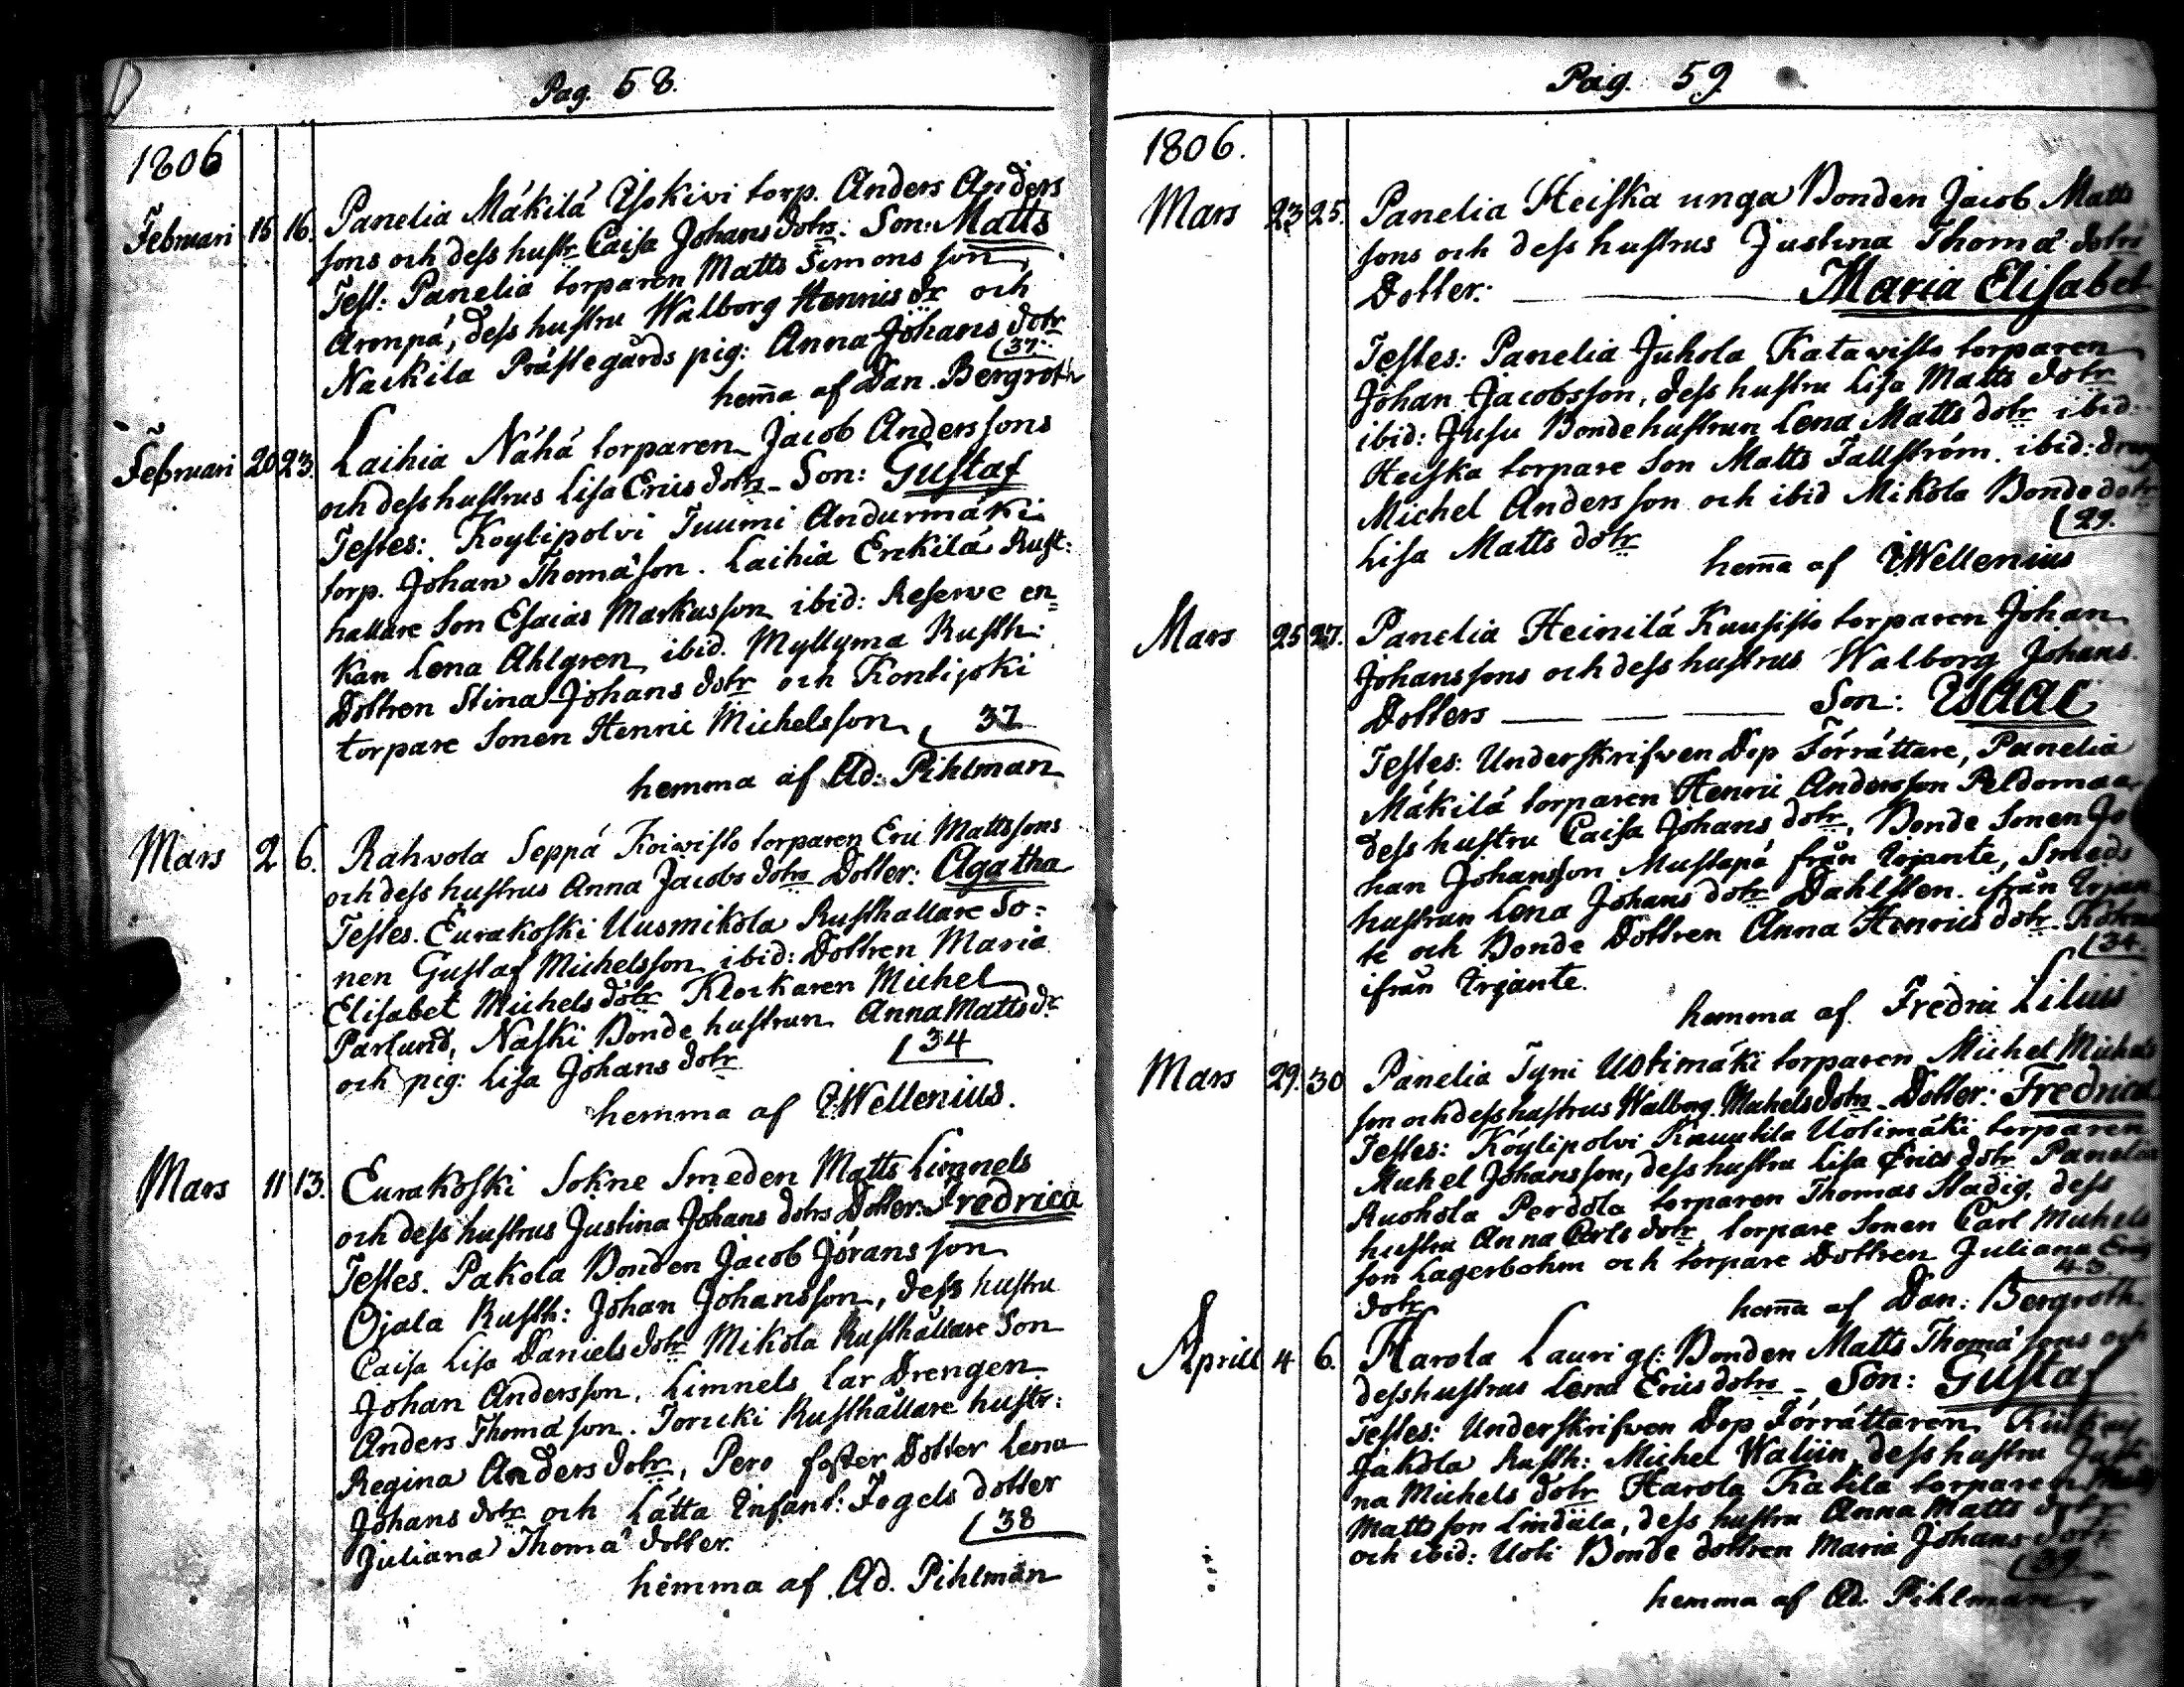 Pag. 58.
1806
Februari 15 16. Panelia Mäkilä Isokivi torp. Anders Anders
sons och dess hustr Caisa Johans dotrs. Son: Matts
Test: Panelia torparen Matts Simons son
Aronpä, dess hustru Walborg Henrics dr och
Nackila Prästegårds pig: Anna Johans dotr
(37.
hem̄a af Dan. Bergroth
Februari 20 23. Laihia Nähä torparen Jacob Anders sons
och dess hustrus Lisa Erics dotrs - Son: Gustaf
Testes: Köylipolvi Tuumi Andurmäki
torp. Johan Thomä son. Laihia Erckilä Rust:
hallare Son Esaias Markusson ibid: Reserve en=
kan Lena Ahlgren, ibid. Myllyma Rusth:
Dottren Stina Johans dotr och Kontijoki
torpare Sonen Henric Michelsson ( 37
hemma af Ad: Pihlman
Mars 2 6. Rahvola Seppä Koivisto torparen Eric Mattssons
och dess hustrus Anna Jacobs dotrs Dotter: Agatha
Testes. Eurakoski Uusmikola Rusthallare So=
nen Gustaf Michelsson ibid: Dottren Maria
Elisabet Michels dotr Klockaren Michel
Parlund, Naski Bonde hustrun Anna Matts dr
och pig: Lisa Johans dotr (34
hemma af I Wellenius.
Mars 11 13. Eurakoski Sokne Smeden Matts Limnels
och dess hustrus Justina Johans dotrs Dotter: Fredrica
Testes. Pakola Bonden Jacob Jörans son
Ojala Rusth: Johan Johansson, dess hustru
Caisa Lisa Daniels dotr Mikola Rusthållare Son
Johan Andersson, Limnels Lär Drengen
Anders Thomä son. Toricki Rusthållare hustr:
Regina Anders dotr, Pero foster Dotter Lena
Johans dotr och Lätta Infant: Fogels dotter
Juliana Thomä dotter. (38
hemma af Ad. Pihlman
Pag. 59
1806.
Mars 23 25. Panelia Heiska unga Bonden Jacob Matts
sons och dess hustrus Justina Thomä dotrs
Dotter: Maria Elisabet
Testes: Panelia Juhola Katavisto torparen
Johan Jacobsson, dess hustru Lisa Matts dotr
ibid: Jusu Bondehustrun Lena Matts dotr ibid:
Heiska torpare Son Matts Fallström. ibid: dreng
Michel Anders son och ibid Mikola Bonde dotr
Lisa Matts dotr (29.
hem̄a af I Wellenius
Mars 25 27. Panelia Heinilä Kuusisto torparen Johan
Johans sons och dess hustrus Walborg Johans
Dotters Son: Isaac
Testes: Underskrifven Dop Förrättare, Panelia
Mäkilä torparen Henric Andersson Peldomaa,
dess hustru Caisa Johans dotr, Bonde Sonen Jo
han Johansson Mustapä från Irjante, Smeds
hustrun Lena Johans dotr Dahlsten ifrån Irjan
te och Bonde Dottren Anna Henrics dotr
ifrån Irjante. (34.
hemma af Fredric Lilius
Mars 29. 30 Panelia Tyni Uotimäki torparen Michel Michels
son och dess hustrus Walborg Michels dotrs - Dotter: Fredrica
Testes: Köylipolvi Kauttila Uotimäki torparen
Michel Johansson, dess hustru Lisa Erics dotr Panelia
Ruohola Perdola torparen Thomas Stadig, dess
hustru Anna Carls dotr, torpare Sonen Carl Michels
son Lagerbohm och torpare Dottren Juliana Erics
dotr 43.
hem̄a af Dan: Bergroth.
Aprill 4 6. Harola Lauri gl: Bonden Matts Thomä sons och
dess hustrus Lena Erics dotrs - Son: Gustaf
Testes: Underskrifven Dop Förrättaren,
Jakola Rusth: Michel Walijn, dess hustru Justi
na Michels dotr Harola Katila torparen
Matts son Lindula, dess hustru Anna Matts dotr
och ibid: Uoti Bonde dottren Maria Johans dotr
(39.
hemma af Ad. Pihlman